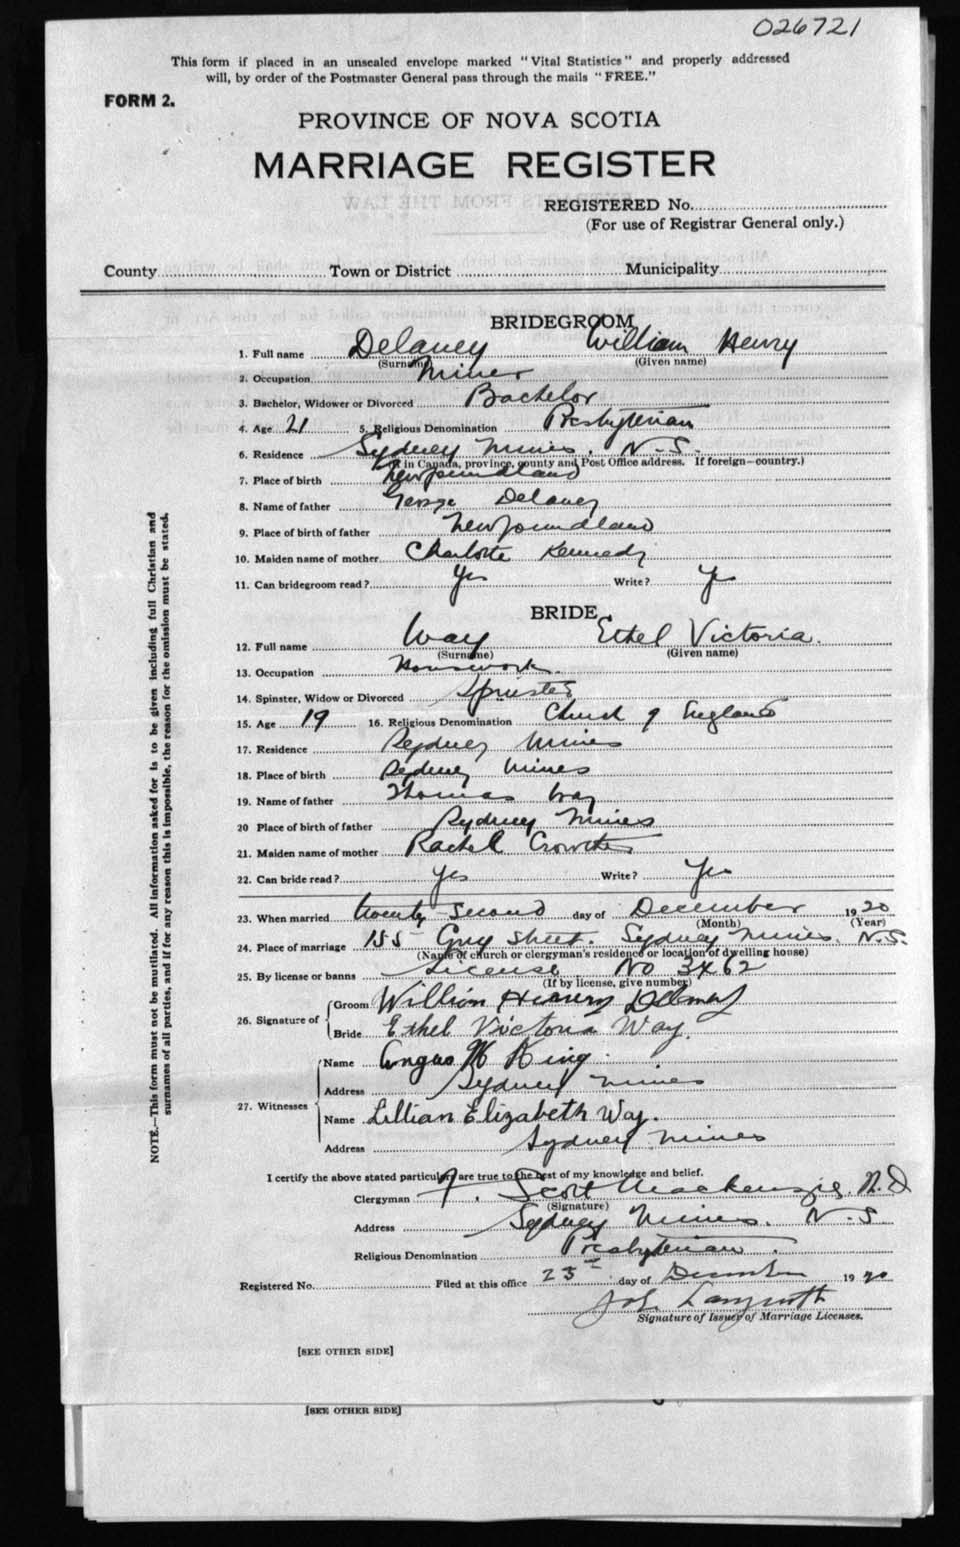 026721
This form if placed in an unsealed envelope marked "Vital Statistics" and properly addressed
will, by order of the Postmaster General pass through the mails "FREE."
FORM 2.
PROVINCE OF NOVA SCOTIA
MARRIAGE REGISTER
REGISTERED No.
(For use of Registrar General only.)
County Town or District Municipality
BRIDEGROOM
1. Full name Delaney William Henry
(Surname) (Given name)
2. Occupation Miner
3. Bachelor, Widower or Divorced Bachelor
4. Age 21 5. Religious Denomination Presbyterian
6. Residence Sydney Mines, N.S.
(If in Canada, province, county and Post Office address. If foreign—country.)
7. Place of birth Newfoundland
8. Name of father George Delaney
9. Place of birth of father Newfoundland
10. Maiden name of mother Charlotte Kennedy
11. Can bridegroom read? Yes Write? Yes
BRIDE
12. Full name Way Ethel Victoria.
(Surname) (Given name)
13. Occupation Housework
14. Spinster, Widow or Divorced Spinster
15. Age 19 16. Religious Denomination Church of England
17. Residence Sydney Mines
18. Place of birth Sydney Mines
19. Name of father Thomas Way
20 Place of birth of father Sydney Mines
21. Maiden name of mother Rachel Crowther
22. Can bride read? Yes Write? Yes
23. When married twenty-second day of December 1920
(Month) (Year)
24. Place of marriage 155 Guy Street. Sydney Mines. N.S.
(Name of church or clergyman's residence or location of dwelling house)
25. By license or banns License No 3462
(If by license, give number)
26. Signature of Groom William Henry
Bride Ethel Victoria Way.
27. Witnesses Name Angus W King
Address Sydney Mines
Name Lillian Elizabeth Way.
Address Sydney Mines
I certify the above stated particulars are true to the best of my knowledge and belief.
Clergyman F. Scott Mackenzie
(Signature)
Address Sydney Mines. N.S
Religious Denomination Presbyterian.
Registered No. Filed at this office 23 day of December 1920
Signature of Issuer of Marriage Licenses.
[SEE OTHER SIDE]
[SEE OTHER SIDE]
NOTE.—This form must not be mutilated. All information asked for is to be given including full Christian and
surnames of all parties, and if for any reason this is impossible, the reason for the omission must be stated.